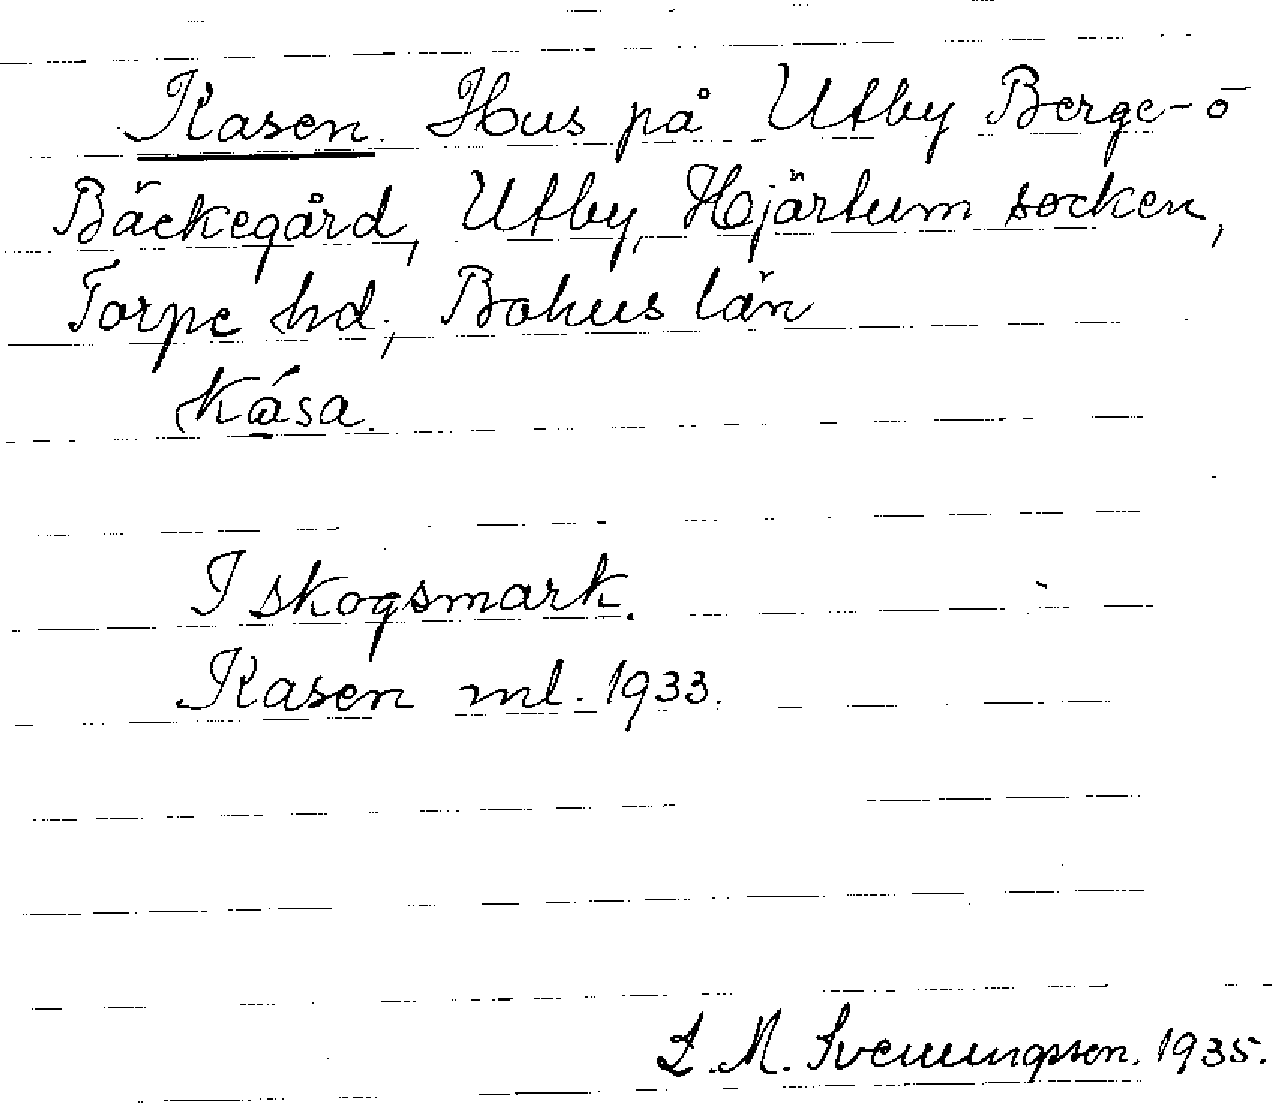 Kasen. Hus på Utby Berge- o
Bäckegård, Utby, Hjärtum socken,
Torpe hd, Bohus län
Kåsa.
I skogsmark.
Kasen ml. 1933.
L. M. Svenungsson. 1935.